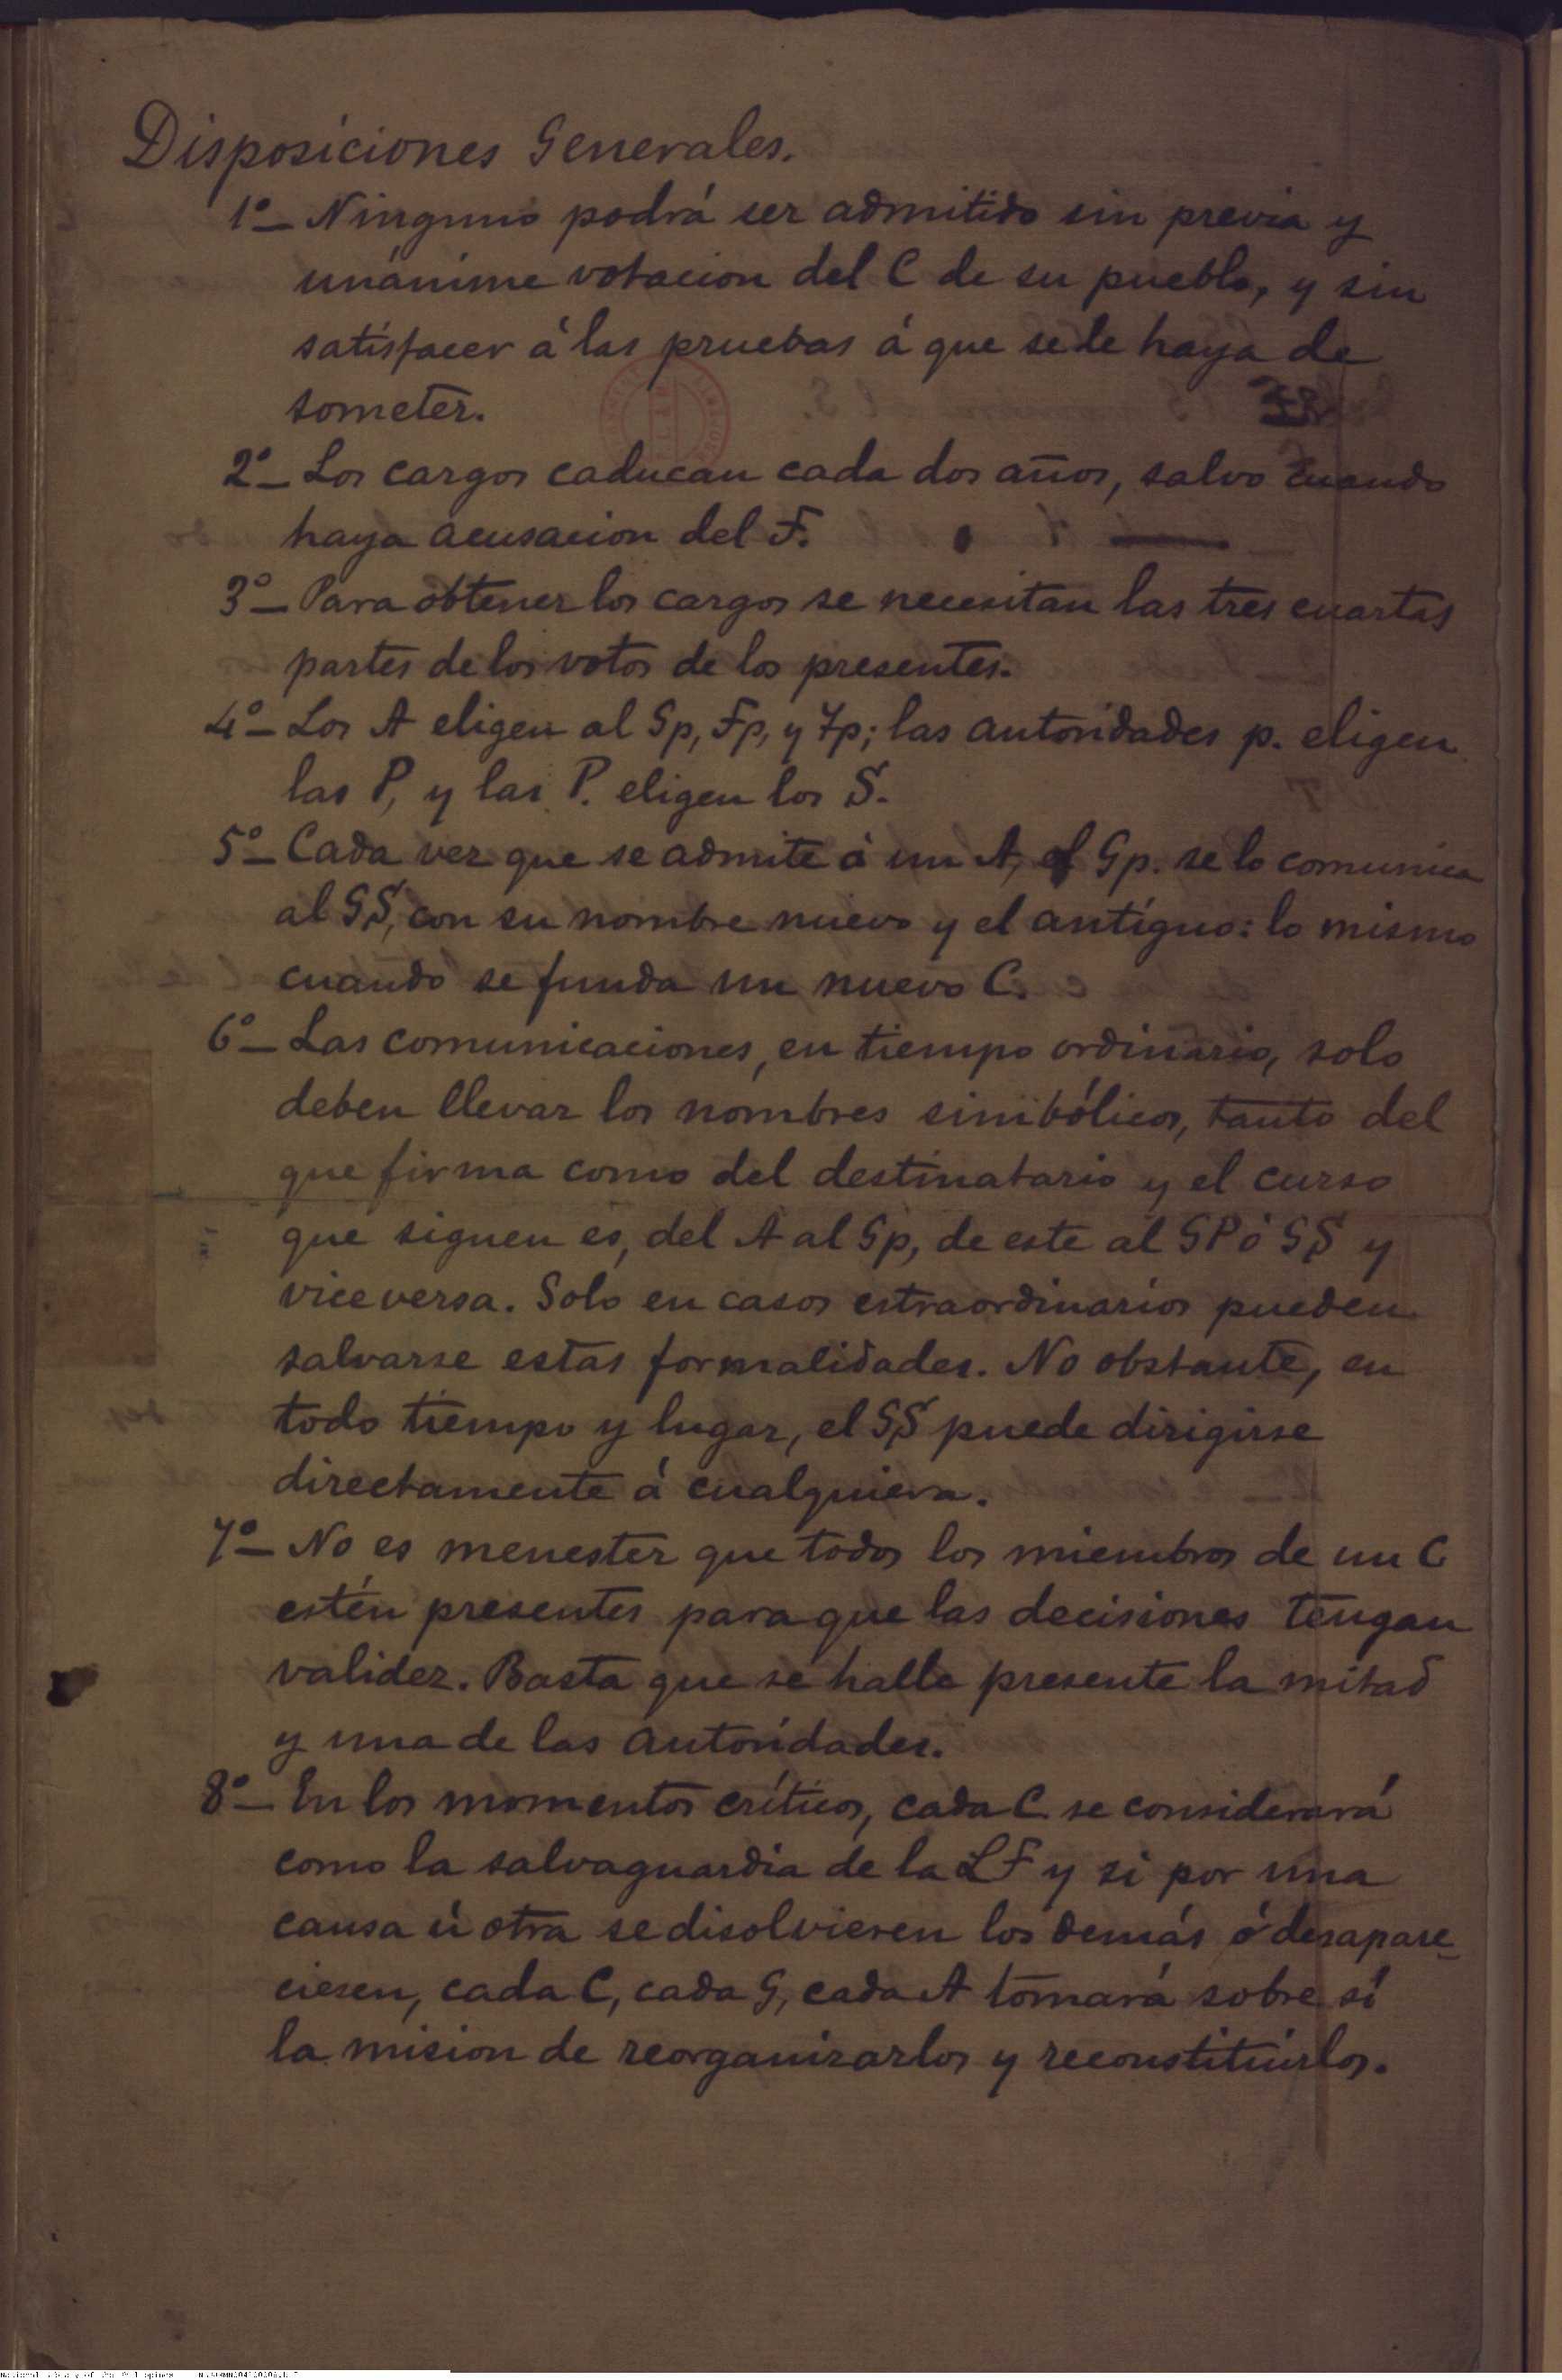 Disposiciones Generales.
1º_ Ninguno podrá ser admitido sin previa y
unánime votacion del C de su pueblo, y sin
satisfacer á las pruebas á que se le haya de
someter.
2º_ Los cargos caducan cada dos años, salvo cuando
haya acusacion del F.
3º_ Para obtener los cargos se necesitan las tres cuartas
partes de los votos de los presentes.
4º_ Los A eligen al Gp, Fp, y Tp; las autoridades p. eligen
las P, y las P. eligen los S.
5º_ Cada vez que se admite á un A, el Gp. se lo comunica
al GS, con su nombre nuevo y el antíguo: lo mismo
cuando se funda un nuevo C.
6º_ Las comunicaciones, en tiempo ordinario, solo
deben llevar los nombres simbólicos, tanto del
que firma como del destinatario y el curso
que siguen es, del A al Gp, de este al GP ó GS y
vice versa. Solo en casos estraordinarios pueden
salvarse estas formalidades. No obstante, en
todo tiempo y lugar, el GS puede dirigirse
directamente á cualquiera.
7º_ No es menester que todos los miembros de un C
estén presentes para que las decisiones tengan
validez. Basta que se halle presente la mitad
y una de las autoridades.
8º_ En los momentos críticos, cada C. se considerará
como la salvaguardia de la LF y si por una
causa ú otra se disolvieren los demás ó desapare_
ciesen, cada C, cada G, cada A tomará sobre sí
la mision de reorganizarlos y reconstituirlos.